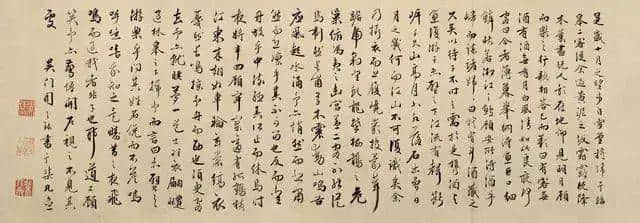 是歲十月之望步自雪堂將歸于臨
皋二客從余過黃泥之坂霜露既降
木葉盡脫人影在地仰見明月顧
而樂之行歌相答已而歎曰有客無
酒有酒無肴月白風清如此良夜何
客曰今者薄暮舉網得魚巨口細
鱗狀如淞江之鱸顧安所得酒乎
歸而謀諸婦婦曰我有斗酒藏之
久矣以待子不時之需於是攜酒與
魚復游於赤壁之下江流有聲斷岸
千尺山高月小水落石出曾日
月之幾何而江山不可復識矣余
乃攝衣而上履巉巖披蒙茸
踞虎豹登虬龍攀棲鶻之危
巢俯馮夷之幽宮蓋二客不能從
焉劃然長嘯草木震動山鳴谷
應風起水涌予亦悄然而悲肅
然而恐凜乎其不可留也反而登
舟放乎中流聽其所止而休焉時
夜將半四顧寂寥適有孤鶴橫
江東來翅如車輪玄裳縞衣
戛然長鳴掠予舟而西也須臾客
去予亦就睡夢一道士羽衣翩躚
過臨皋之下揖予而言曰赤壁之
游樂乎問其姓名俛而不答嗚
呼噫嘻我知之矣疇昔之夜飛
鳴而過我者非子也耶道士顧
笑予亦驚悟開戶視之不見其
處 吳門周 書于